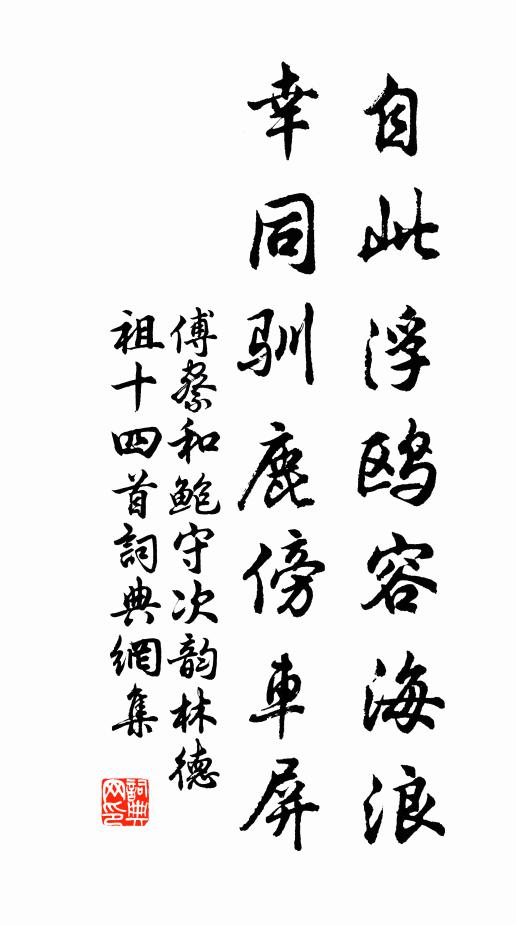 自此浮鸥容海浪
幸同驯鹿傍車屏
傅察和鲍守次韵林德
祖十四首詞典網集
詞典
网印